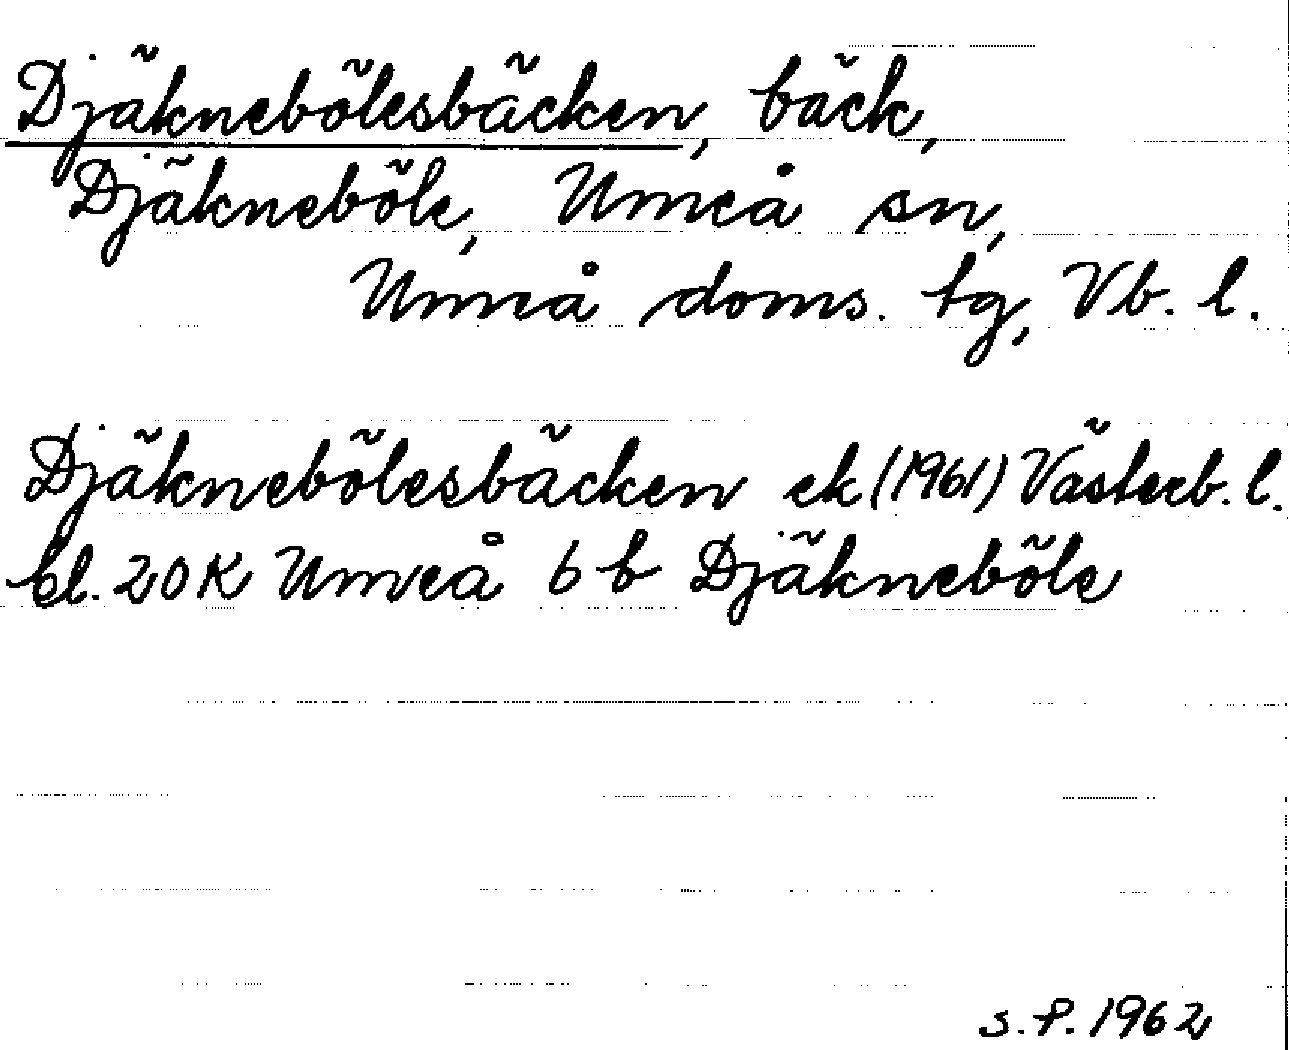 Djäknebölesbäcken, bäck,
Djäkneböle, Umeå sn,
Umeå doms. tg, Vb. l.
Djäknebölesbäcken ek (1961) Västerb. l.
bl. 20 K Umeå 6 b Djäkneböle
S.P. 1962